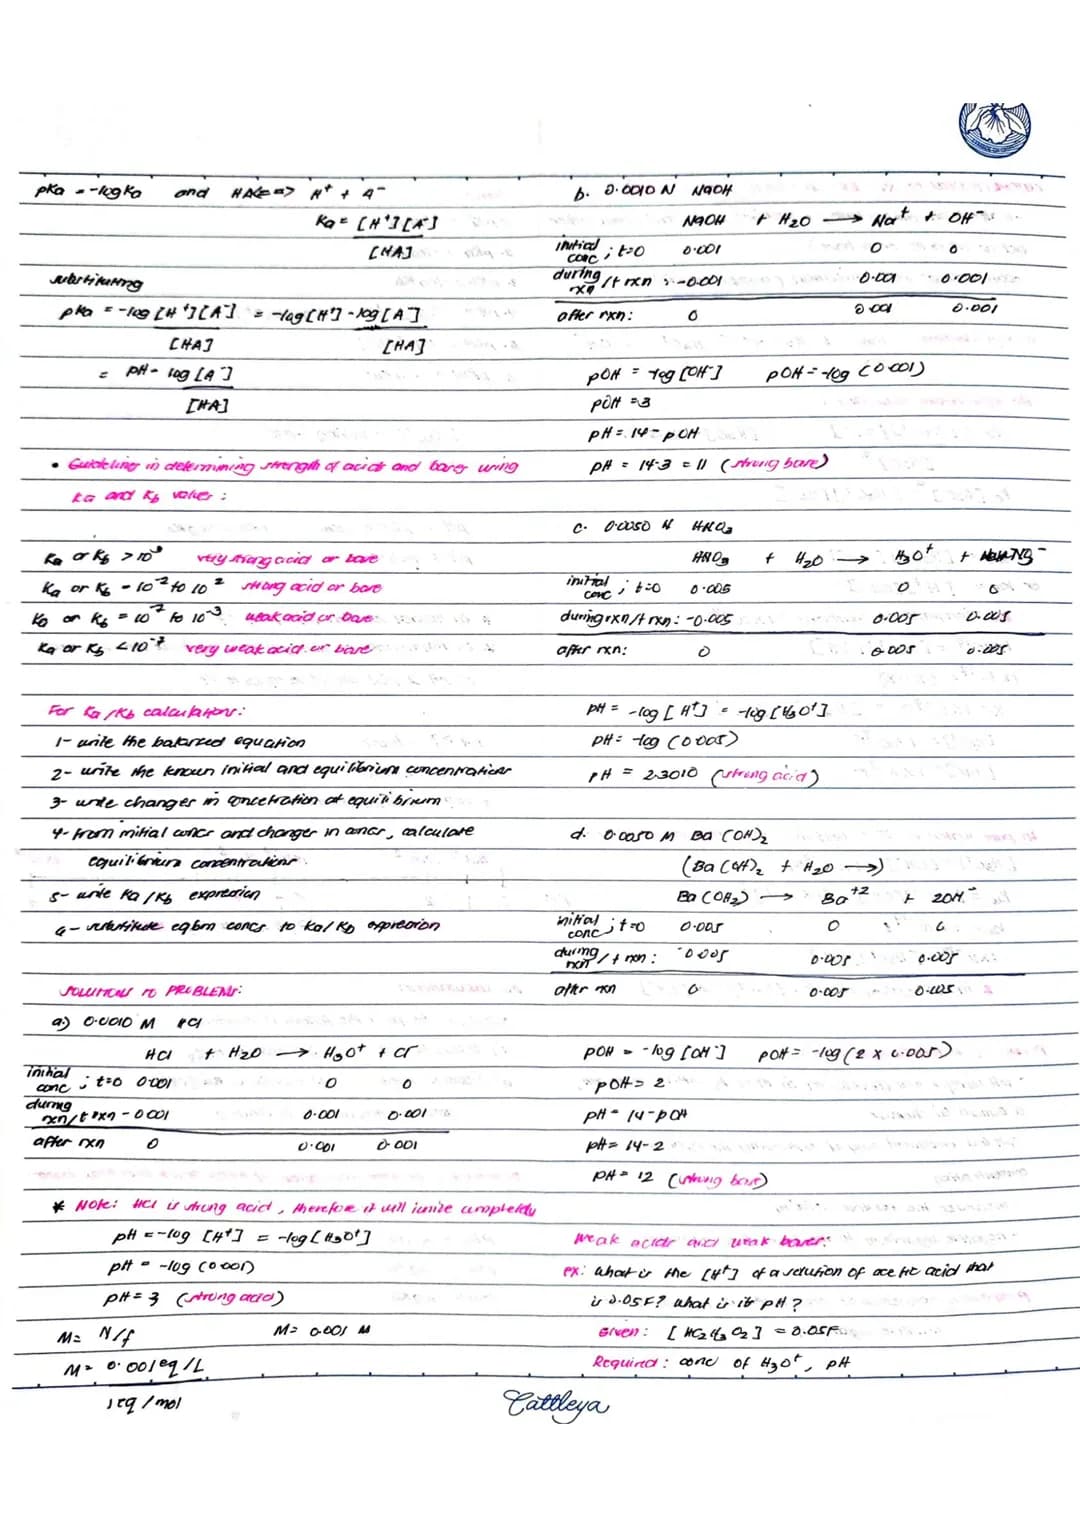 pKa = -log Ka and HA <=> H⁺ + A⁻
Ka = [H⁺][A⁻]
[HA]
substituting
pKa = -log [H⁺][A⁻] = -log[H⁺] - log[A⁻]
[HA] [HA]
= pH - log [A⁻]
[HA]
• Guidelines in determining strength of acids and bases using
Ka and Kb values :
Ka or Kb > 10³ very strong acid or base
Ka or Kb = 10⁻² to 10² strong acid or base
Ka or Kb = 10⁻⁷ to 10⁻³ weak acid or base
Ka or Kb < 10⁻⁷ very weak acid or base
For Ka/Kb calculations:
1- write the balanced equation
2- write the known initial and equilibrium concentrations
3- write changes in concetration at equilibrium
4- from initial concs and changes in concs, calculate
equilibrium concentrations.
5- write Ka/Kb expression
6- substitute eqbm concs to Ka/Kb expression
SOLUTIONS TO PROBLEMS:
a) 0.0010 M HCl
HCl + H2O → H3O⁺ + Cl⁻
initial conc ; t=0 0.001 0 0
during rxn/t rxn -0.001 0.001 0.001
after rxn 0 0.001 0.001
* Note: HCl is strong acid, therefore it will ionize completely
pH = -log [H⁺] = -log [H3O⁺]
pH = -log (0.001)
pH = 3 (strong acid)
M = N/f M = 0.001 M
M = 0.001 eq/L
1 eq/mol
b. 0.0010 N NaOH
NaOH + H2O → Na⁺ + OH⁻
initial conc ; t=0 0.001 0 0
during rxn /t rxn : -0.001 0.001 0.001
after rxn: 0 0.001 0.001
pOH = -log [OH⁻] pOH = -log (0.001)
pOH = 3
pH = 14 - pOH
pH = 14-3 = 11 (strong base)
c. 0.0050 N HNO3
HNO3 + H2O → H3O⁺ + NO3⁻
initial conc ; t=0 0.005 0 0
during rxn/t rxn: -0.005 0.005 0.005
after rxn: 0 0.005 0.005
pH = -log [H⁺] = -log [H3O⁺]
pH = -log (0.005)
pH = 2.3010 (strong acid)
d. 0.0050 M Ba(OH)2
(Ba(OH)2 + H2O →)
Ba(OH2) → Ba⁺² + 2OH⁻
initial conc ; t=0 0.005 0 0
during rxn /t rxn : -0.005 0.005 0.005
after rxn 0 0.005 0.005
pOH = -log [OH⁻] pOH = -log (2 x 0.005)
pOH = 2
pH = 14-pOH
pH = 14-2
pH = 12 (strong base)
Weak acids and weak bases:
ex: What is the [H⁺] of a solution of acetic acid that
is 0.05F? What is its pH?
Given: [HC2H3O2] = 0.05F
Required: conc of H3O⁺, pH
Cattleya